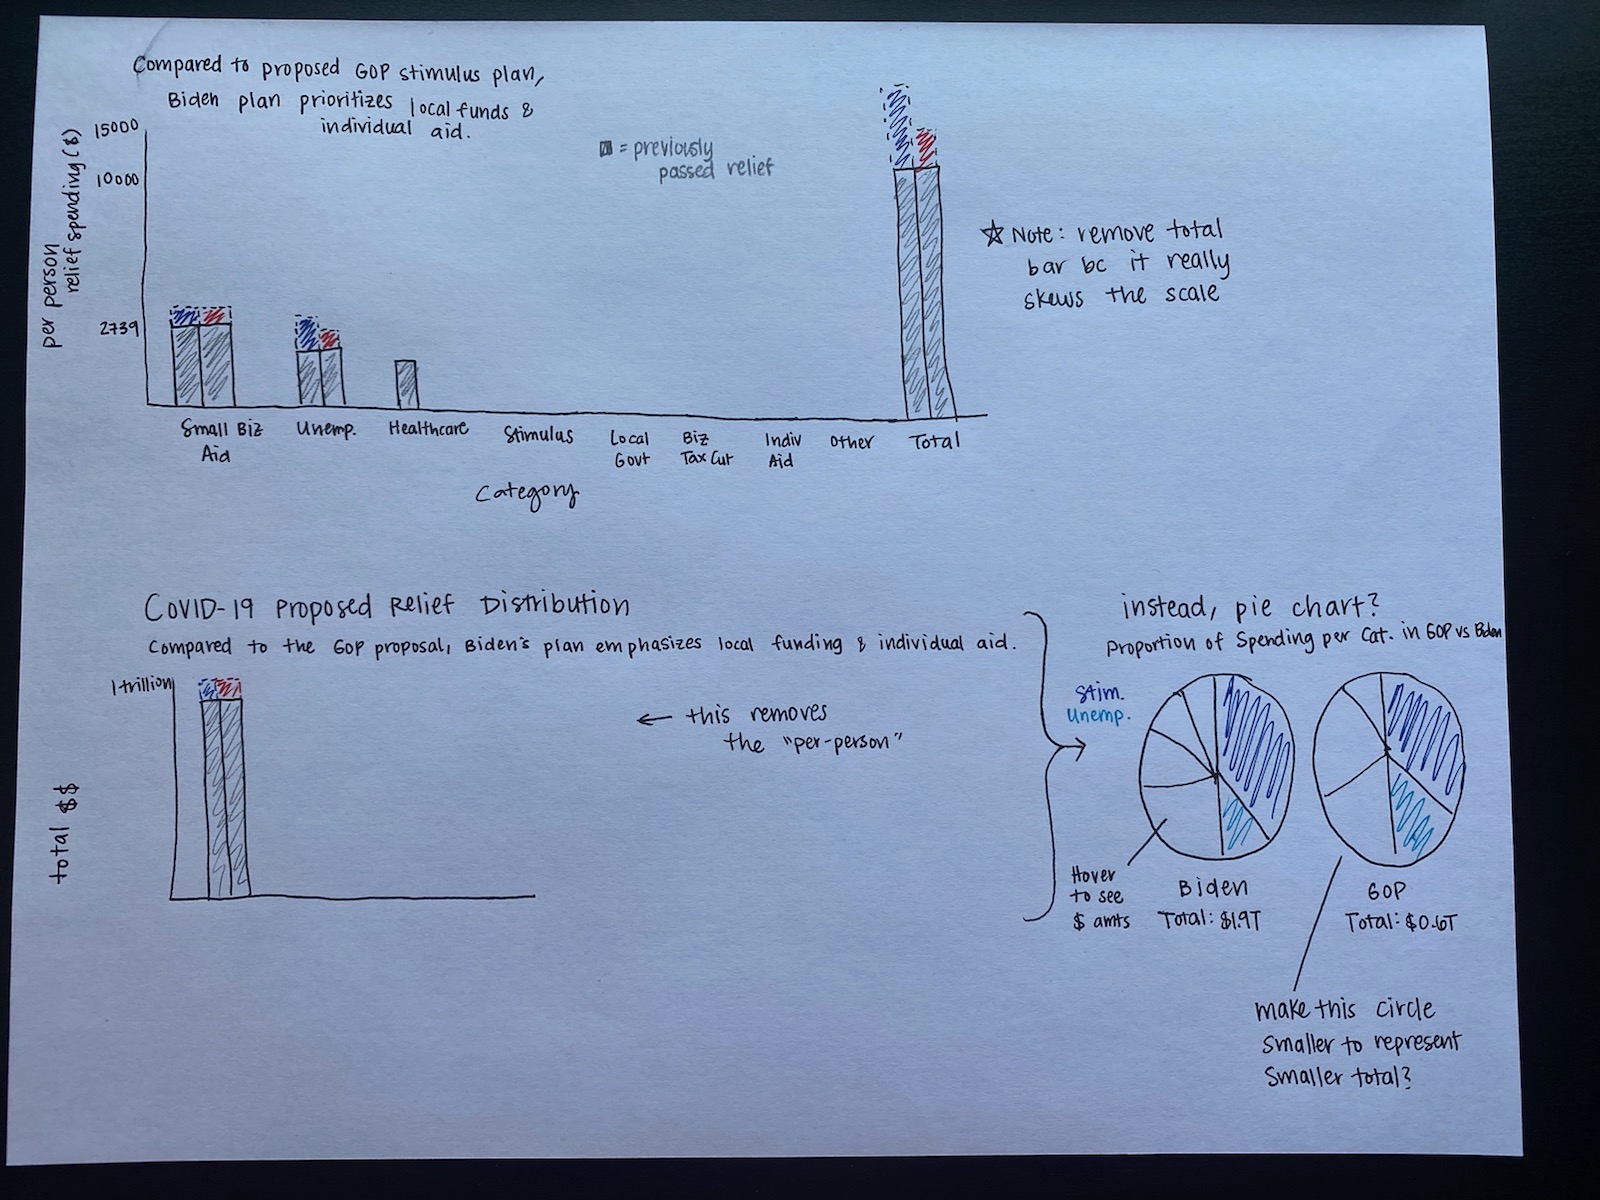 Compared to proposed GOP stimulus plan,
Biden plan prioritizes local funds &
individual aid.
per person
relief spending ($)
15000
10000
2739
= previously
passed relief
☆ Note: remove total
bar bc it really
skews the scale
Small Biz
Aid
Unemp.
Healthcare
Stimulus
Local
Govt
Biz
Tax Cut
Indiv
Aid
Other
Total
Category
COVID-19 Proposed Relief Distribution
Compared to the GOP proposal, Biden's plan emphasizes local funding & individual aid.
1 trillion
total $$
← this removes
the "per-person"
instead, pie chart?
Proportion of Spending per Cat. in GOP vs Biden
Stim.
Unemp.
Hover
to see
$ amts
Biden
Total: $1.9T
GOP
Total: $0.6T
make this circle
smaller to represent
smaller total?